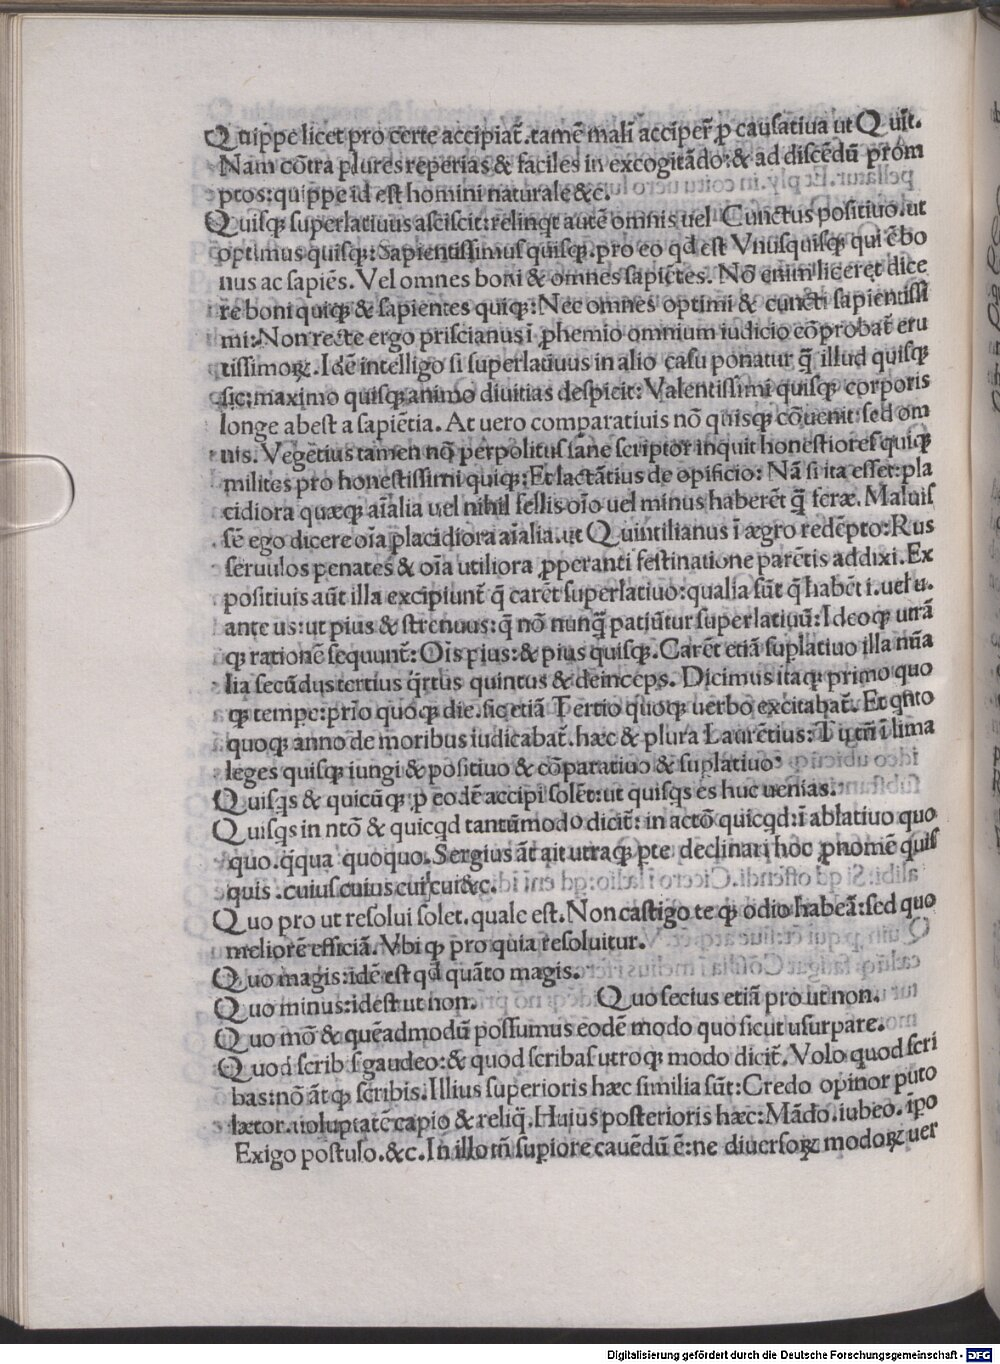 Quippe licet pro certe accipiat̃.tamẽ mali᷒ acciper̃ ꝓ causatiua ut Quĩt.
Nam cõtra plures reperias & faciles in excogitãdo:& ad discẽdũ prom
ptos:quippe id est homini naturale &c.
Quisqꝫ superlatiuus asciscit:relinqt autẽ omnis uel Cunctus positiuo.ut
optimus quisqꝫ:Sapientissimus quisqꝫ.pro eo qd est Vnusquisqꝫ qui ẽ bo
nus ac sapiẽs. Vel omnes boni & omnes sapiẽtes. Nõ enim liceret dice
re boni quiqꝫ & sapientes quiqꝫ:Nec omnes optimi & cuncti sapientissi
mi:Non recte ergo priscianus ĩ ꝓhemio omnium iudicio cõprobat̃ eru
tissimoꝝ.Idẽ intelligo si superlatiuus in alio casu ponatur q̃ illud quisqꝫ
sic:maximo quisqꝫ animo diuitias despicit:Valentissimi quisqꝫ corporis
longe abest a sapiẽtia. At uero comparatiuis nõ quisqꝫ cõuenit:sed om
nis. Vegetius tamen nõ perpolitus sane scriptor inquit honestiores quisqꝫ
milites pro honestissimi quiqꝫ:Et lactãtius de opificio: Nã si ita esset:pla
cidiora quæqꝫ aĩalia uel nihil fellis oĩo uel minus haberẽt q̃ feræ. Maluis
sẽ ego dicere oĩa placidiora aĩalia.ut Quintilianus ĩ ægro redẽpto:Rus
seruulos penates & oĩa utiliora ꝓperanti festinatione parẽtis addixi.Ex
positiuis aũt illa excipiunt̃ q̃ carẽt superlatiuo:qualia sũt q̃ habẽt i.uel u.
ante us:ut pius & strenuus:q̃ nõ nunq̃ patiũtur superlatiuũ:Ideoqꝫ utrã
qꝫ rationẽ sequunt̃:Oĩs pius:& pius quisqꝫ.Carẽt etiã suplatiuo illa nũa
lia secũdus tertius q̃rtus quintus & deinceps. Dicimus itaqꝫ primo quo
qꝫ tempe:prĩo quoqꝫ die.sic etiã Tertio quoqꝫ uerbo excitabat̃. Et qnto
quoqꝫ anno de moribus iudicabat̃.hæc & plura Laurẽtius: Tu tñ ĩ lima
leges quisqꝫ iungi & positiuo & cõparatiuo & suplatiuo:
Quisqs & quicũqꝫ:p eodẽ accipi solẽt:ut quisqs es huc uenias.
Quisqs in ntõ & quicqd tantũmodo dicit̃: in actõ quicqd:ĩ ablatiuo quo
quo.q̃qua quoquo.Sergius ãt ait utraqꝫ pte declinari hoc ꝓnomẽ quis
quis.cuiuscuius cuicui&c.
Quo pro ut resolui solet.quale est.Non castigo te qꝫ odio habeã:sed quo
meliorẽ efficiã.Vbi qꝫ pro quia resoluitur.
Quo magis:idẽ est qd quãto magis.
Quo minus:idest ut non. Quo secius etiã pro ut non.
Quo mõ & quẽadmodũ possumus eodẽ modo quo sicut usurpare.
Quod scribis gaudeo:& quod scribas utroqꝫ modo dicit̃.Volo quod scri
bas:nõ ãt qꝫ scribis.Illius superioris hæc similia sũt:Credo opinor puto
lætor.uoluptatẽ capio & reliq̃.Huius posterioris hæc:Mãdo.iubeo.ipo
Exigo postulo.&c.In illo tñ supiore cauẽdũ ẽ:ne diuersoꝝ modoꝝ uer
Digitalisierung gefördert durch die Deutsche Forschungsgemeinschaft - DFG